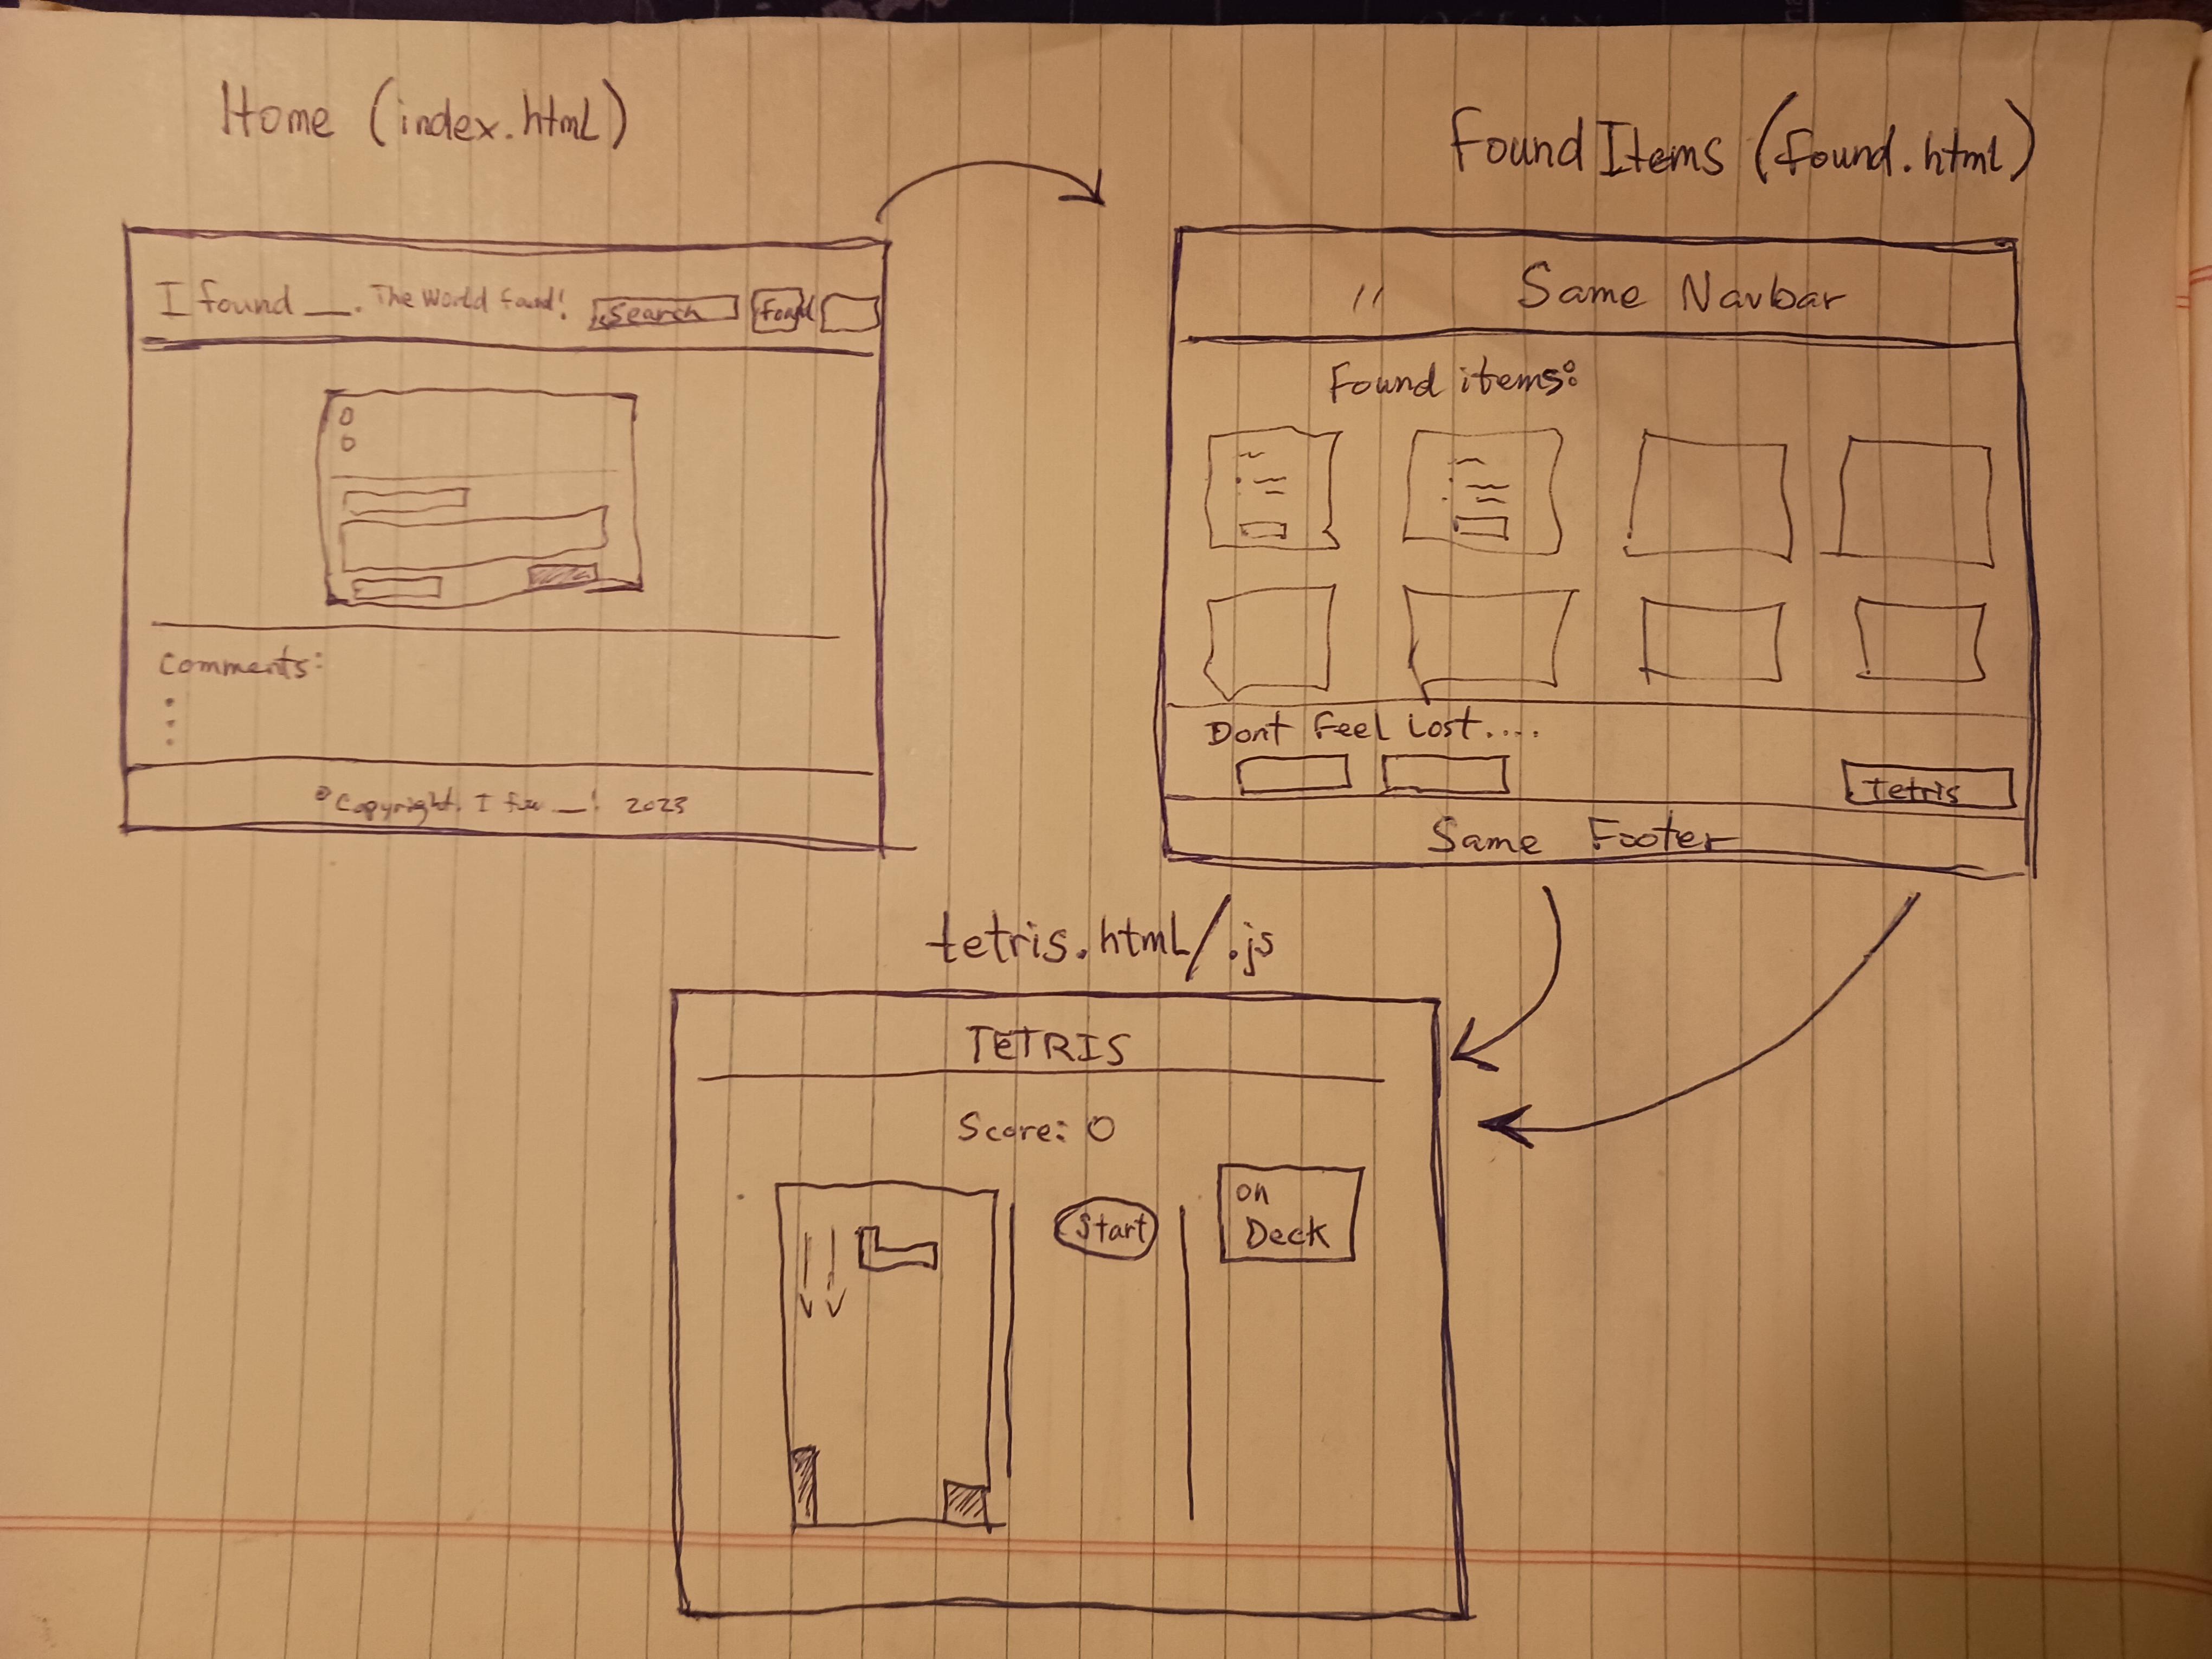 Home (index.html)
I found __. The World found! Search Found
Comments:
© Copyright. I fou __! 2023
Found Items (found.html)
" Same Navbar
Found items:
Dont Feel Lost....
Tetris
Same Footer
tetris.html/.js
TETRIS
Score: 0
Start
on
Deck